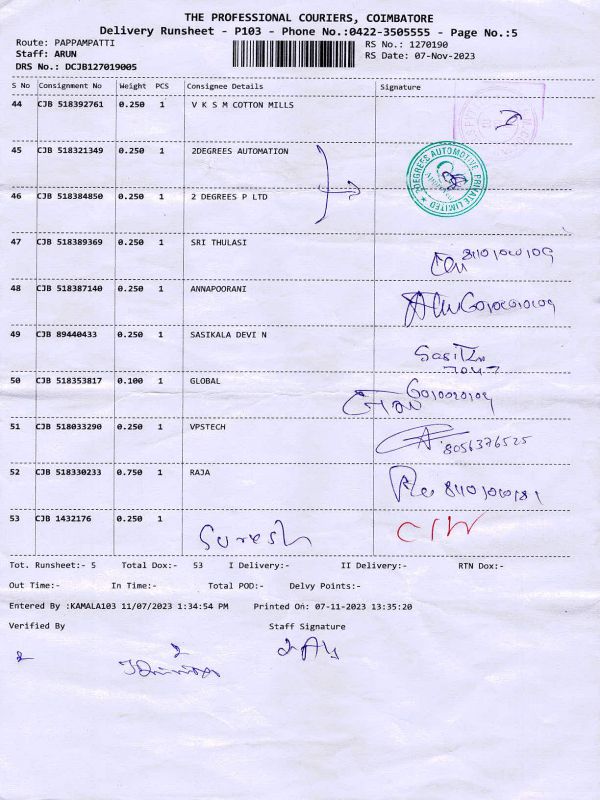 THE PROFESSIONAL COURIERS, COIMBATORE
Delivery Runsheet - P103 - Phone No.:0422-3505555 - Page No.:5
Route: PAPPAMPATTI RS No.: 1270190
Staff: ARUN RS Date: 07-Nov-2023
DRS No.: DCJB127019005
S No Consignment No Weight PCS Consignee Details Signature
44 CJB 518392761 0.250 1 V K S M COTTON MILLS
45 CJB 518321349 0.250 1 2DEGREES AUTOMATION
2DEGREES AUTOMOTIVE PRIVATE LIMITED
46 CJB 518384850 0.250 1 2 DEGREES P LTD
47 CJB 518389369 0.250 1 SRI THULASI
48 CJB 518387140 0.250 1 ANNAPOORANI
49 CJB 89440433 0.250 1 SASIKALA DEVI N
50 CJB 518353817 0.100 1 GLOBAL
51 CJB 518033290 0.250 1 VPSTECH 8056376525
52 CJB 518330233 0.750 1 RAJA
53 CJB 1432176 0.250 1 Suresh
Tot. Runsheet:- 5 Total Dox:- 53 I Delivery:- II Delivery:- RTN Dox:-
Out Time:- In Time:- Total POD:- Delvy Points:-
Entered By :KAMALA103 11/07/2023 1:34:54 PM Printed On: 07-11-2023 13:35:20
Verified By Staff Signature